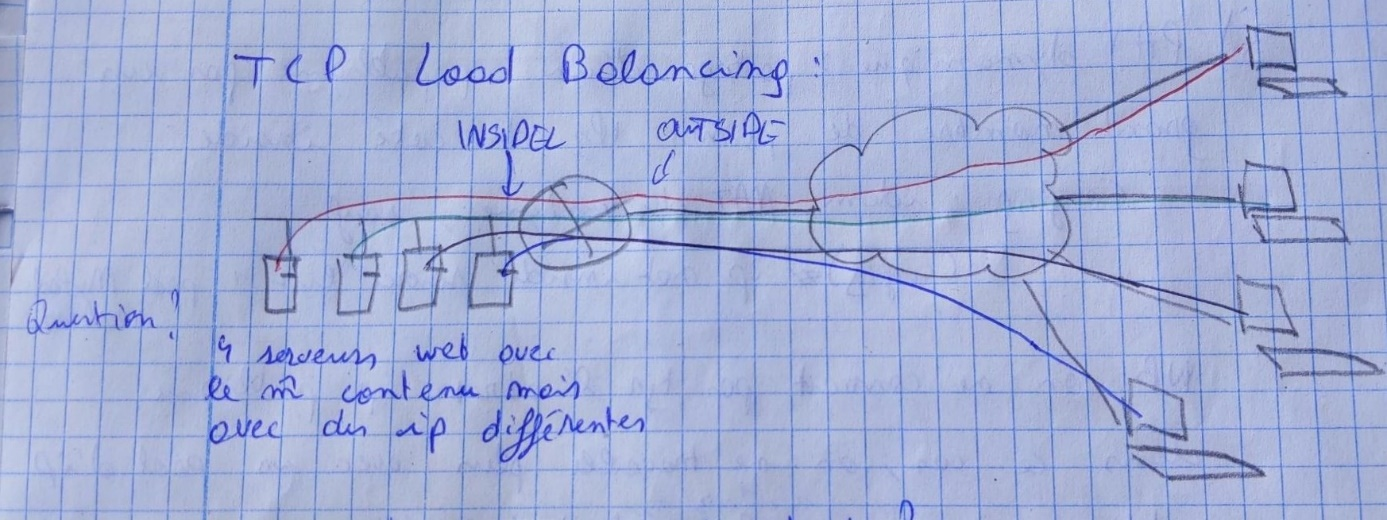 TCP Load Balancing :
INSIDE OUTSIDE
Question ?
4 serveurs web avec
le m̄ contenu mais
avec des ip différentes